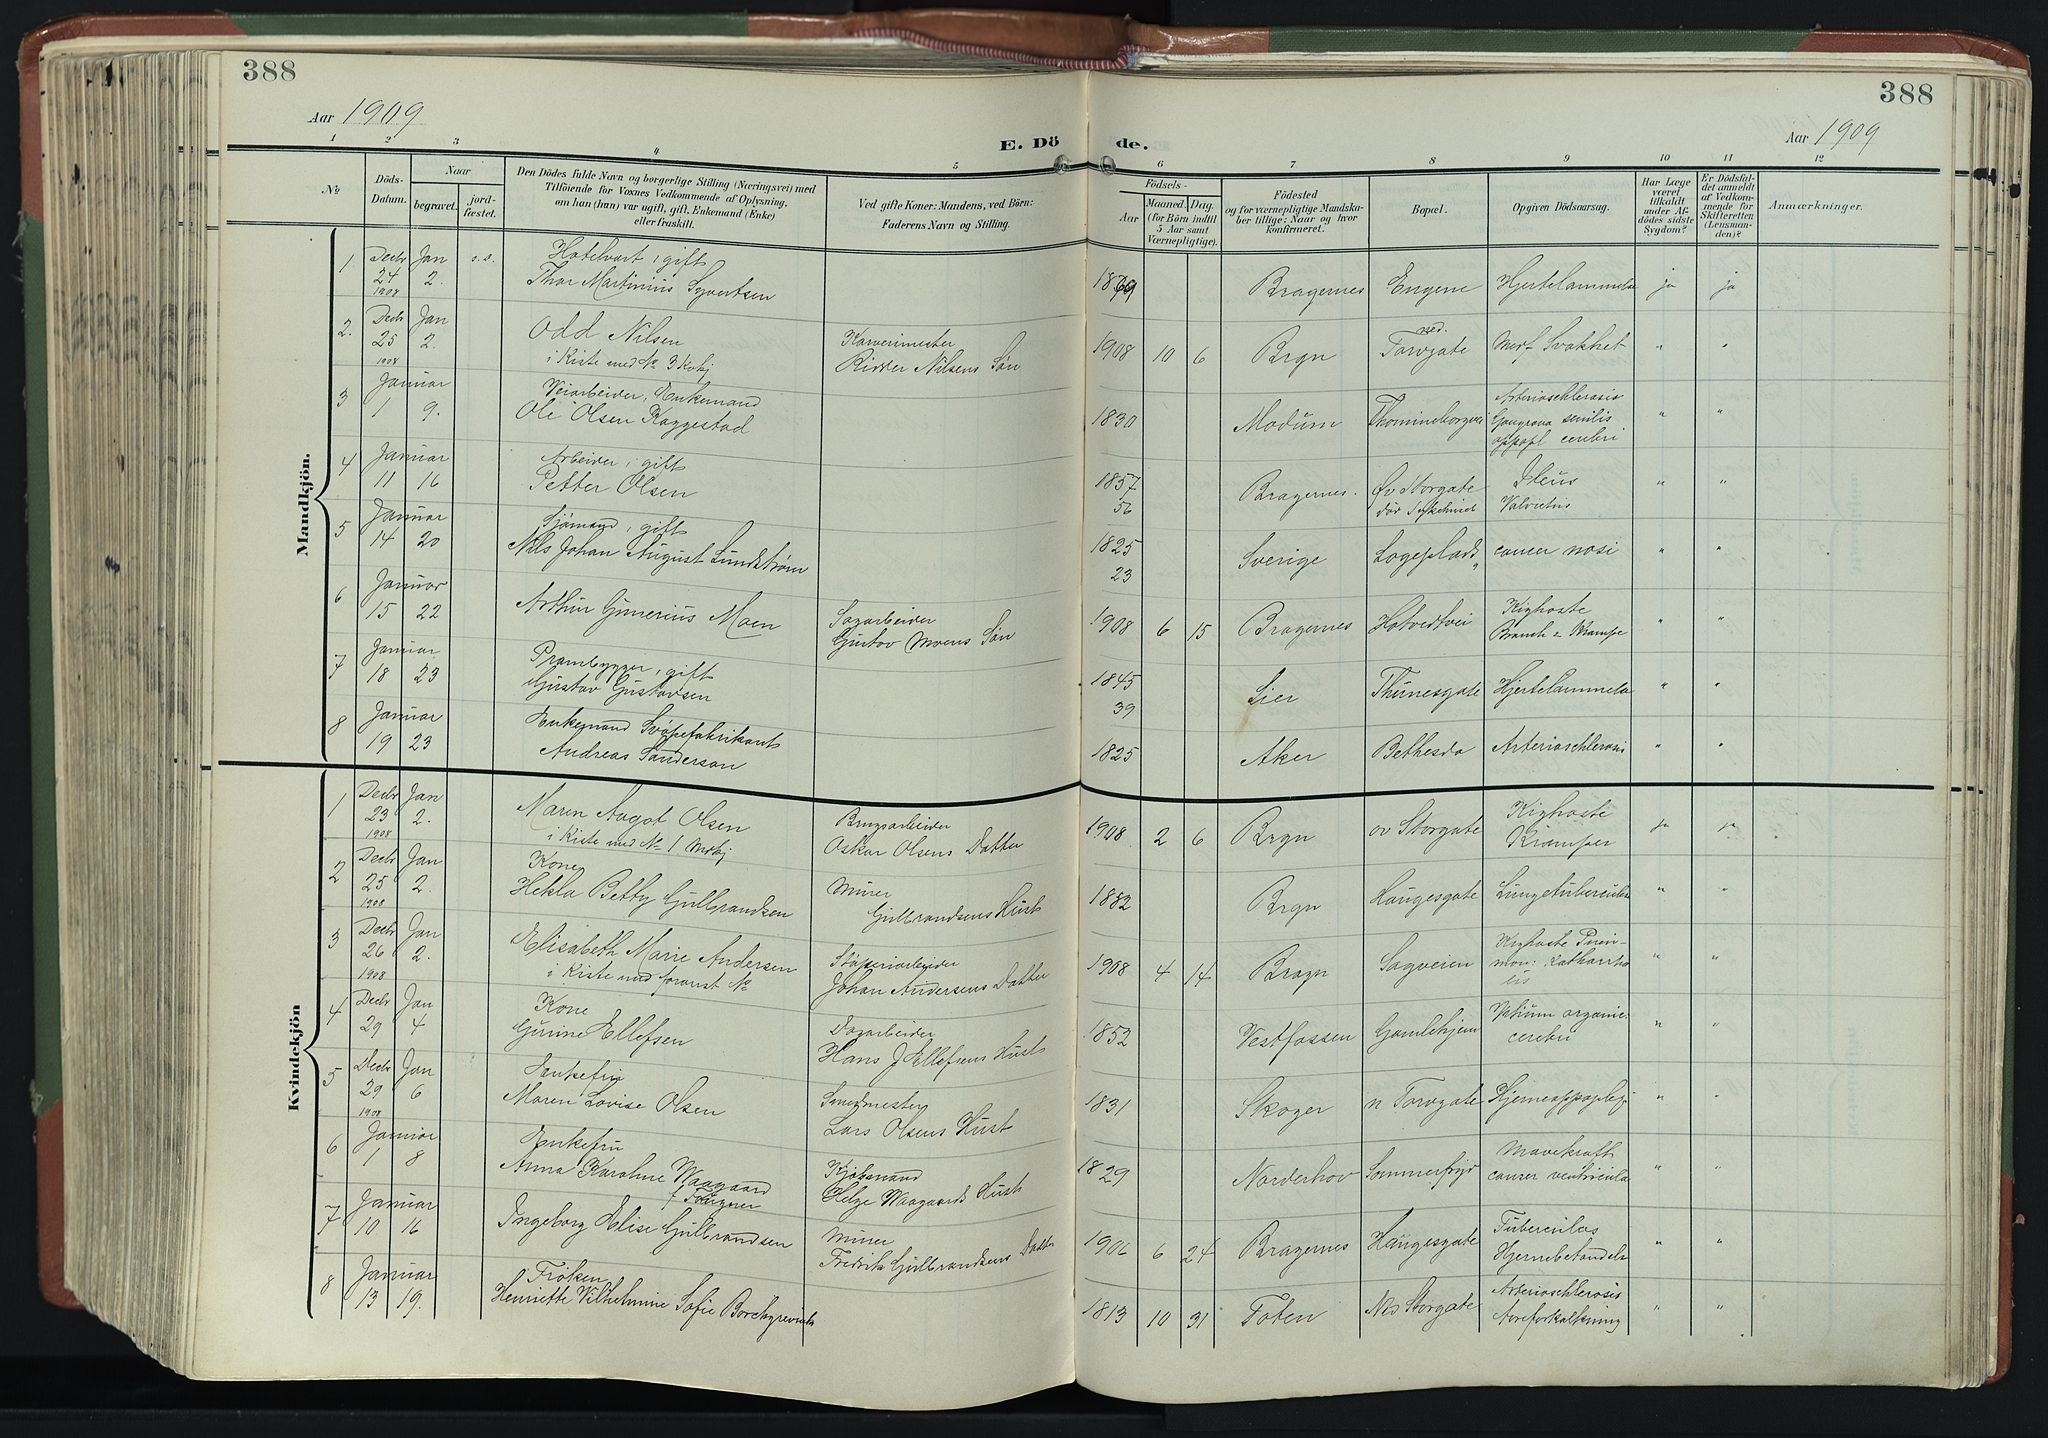 388
388
Aar 1909
E. Dö
de.
Aar 1909
1 2 3 4 5 6 7 8 9 10 11 12
No
Döds-
Datum.
Naar
begravet.
jord-
fæstet.
Den Dödes fulde Navn og borgerlige Stilling (Næringsvei) med
Tilföiende for Voxnes Vedkommende af Oplysning,
om han (hun) var ugift, gift, Enkemand (Enke)
eller fraskilt.
Ved gifte Koner: Mandens, ved Börn:
Faderens Navn og Stilling.
Födsels-
Aar
Maaned. Dag.
(for Börn indtil
5 Aar samt
Værnepligtige).
Födested
og for værnepligtige Mandska-
ber tillige: Naar og hvor
konfirmeret.
Bopæl.
Opgiven Dödsaarsag.
Har Læge
været
tilkaldt
under Af-
dödes sidste
Sygdom?
Er Dödsfal-
det anmeldt
af Vedkom-
mende for
Skifteretten
(Lensman-
den)?
Anmærkninger.
Mandkjön.
1 Decbr 24 1908 Jan 2. s.s. Hotelvært, gift
Thor Martinius Syvertsen 1869 Bragernes Engene Hjertelammelse ja ja
2. Decbr 25 1908 Jan 2. Odd Nilsen
i Kiste med No 3 Kvkj
Ridder Nilsens Søn 1908 10 6 Brgn ned. Torvgate Medf Svakhet " "
3 Januar 1 9. Veiarbeider, Enkemand
Ole Olsen Kaggestad 1830 Modum Thomineborgvei Arterioschlerosis
Gangræna senilis
appopl cerebri " "
4 Januar 11 16 Arbeider, gift
Petter Olsen 1857
56 Bragernes. Øv Storgate Ileus
Valvulus " "
5 Januar 14 20 Sjømand, gift
Nils Johan August Lundstrøm 1825
23 Sverige Løgeplads cancer nasi " "
6 Januar 15 22 Arthur Gunerius Moen Sagarbeider
Gustav Moens Søn 1908 6 15 Bragernes Hotvedtvei Kighoste
Bronch & Krampe " "
7 Januar 18 23 Prambygger, gift
Gustav Gustavsen 1845
39 Lier Thunesgate Hjertelammelse " "
8 Januar 19 23 Enkemand Svøpefabrikant
Andreas Sanderson 1825 Aker Bethesda Arterioschlerosis " "
Kvindekjön
1 Decbr 23 1908 Jan 2. Maren Aagot Olsen
i Kiste med No 1 Mdkj Brugsarbeider
Oskar Olsens Datter 1908 2 6 Brgn øv Storgate Kighoste
Kramper ja ja
2 Decbr 25 1908 Jan 2. Kone
Hekla Betty Gulbrandsen Murer
Gulbrandsens Hust 1882 Brgn Haugesgate Lungetuberculose " "
3 Decbr 26 1908 Jan 2. Elisabeth Marie Andersen
i Kiste med foranst No Støperiarbeider
Johan Andersens Datter 1908 4 14 Bragn Sagveien Kighoste " "
4 Decbr 29 Jan 4 Kone
Gurine Ellefsen Dagarbeider
Hans J Ellefsens Hust 1852 Vestfossen Gamlehjem Vitium organic
cerebri " "
5 Decbr 29 1908 Jan 6 Enkefru
Maren Lovise Olsen Smedmester
Lars Olsens Hust 1831 Skoger n Torvgate Hjerneappoplegi " "
6 Januar 1 8 Enkefru
Anna Karoline Waagaard
f Fougner Kjøbmand
Helge Waagaards Hust 1829 Norderhov Sommerfryd Mavekræft
cancer ventriculi " "
7 Januar 10 16 Ingeborg Elise Gulbrandsen Murer
Fredrik Gulbrandsens Datter 1906 6 24 Bragernes Haugesgate Tuberculøs
Hjernebetændelse " "
8 Januar 13 19. Frøken
Henriette Vilhelmine Sofie Borchgrevink 1813 10 31 Toten Ned Storgate Arterioschlerosis
Areforkalkning " "